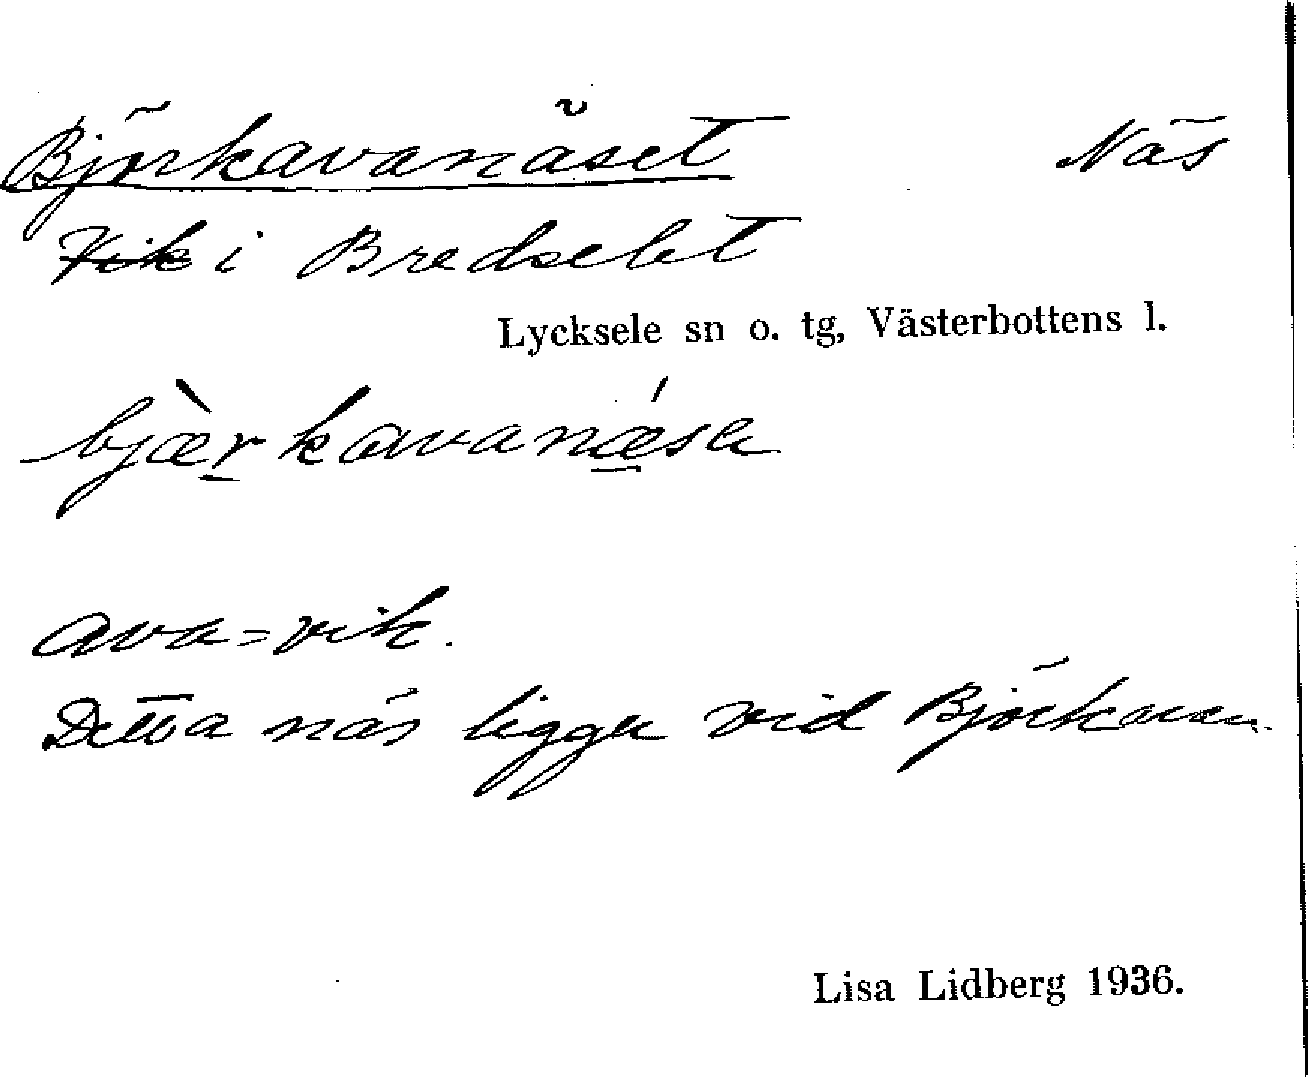 Björkavanäset Näs
Vik i Bredselet
Lycksele sn o. tg, Västerbottens l.
bjæ̀rkavanǽsa
ava=vik.
Detta näs ligger vid Björkavan.
Lisa Lidberg 1936.